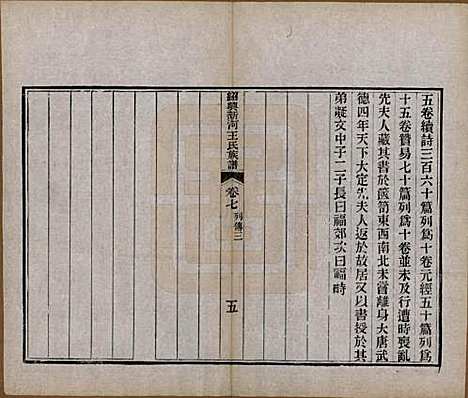 五卷續詩三百六十篇列爲十卷元經五十篇列爲
十五卷贊易七十篇列爲十卷並未及行遭時喪亂
先夫人藏其書於篋笥東西南北未嘗離身大唐武
德四年天下大定先夫人返於故居又以書授於其
弟凝文中子二子長曰福郊次曰福畤
紹興新河王氏族譜
卷七 列傳三
五